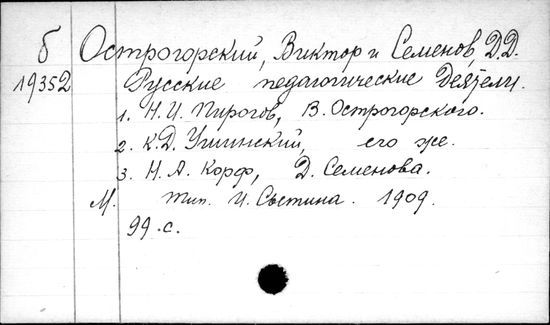 б Острогорский, Виктор и Семенов, Д.Д.
19352 Русские педагогические деятели.
1. Н. И. Пирогов, В. Острогорского.
2. К.Д. Ушинский, его же.
3. Н. А. Корф, Д. Семенова.
М. Тип. И. Сытина. 1909.
99 с.